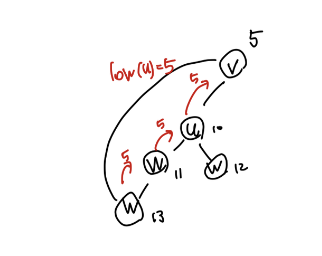 5
low(u)=5
V
5
u 10
5
W 11
W 12
5
W 13